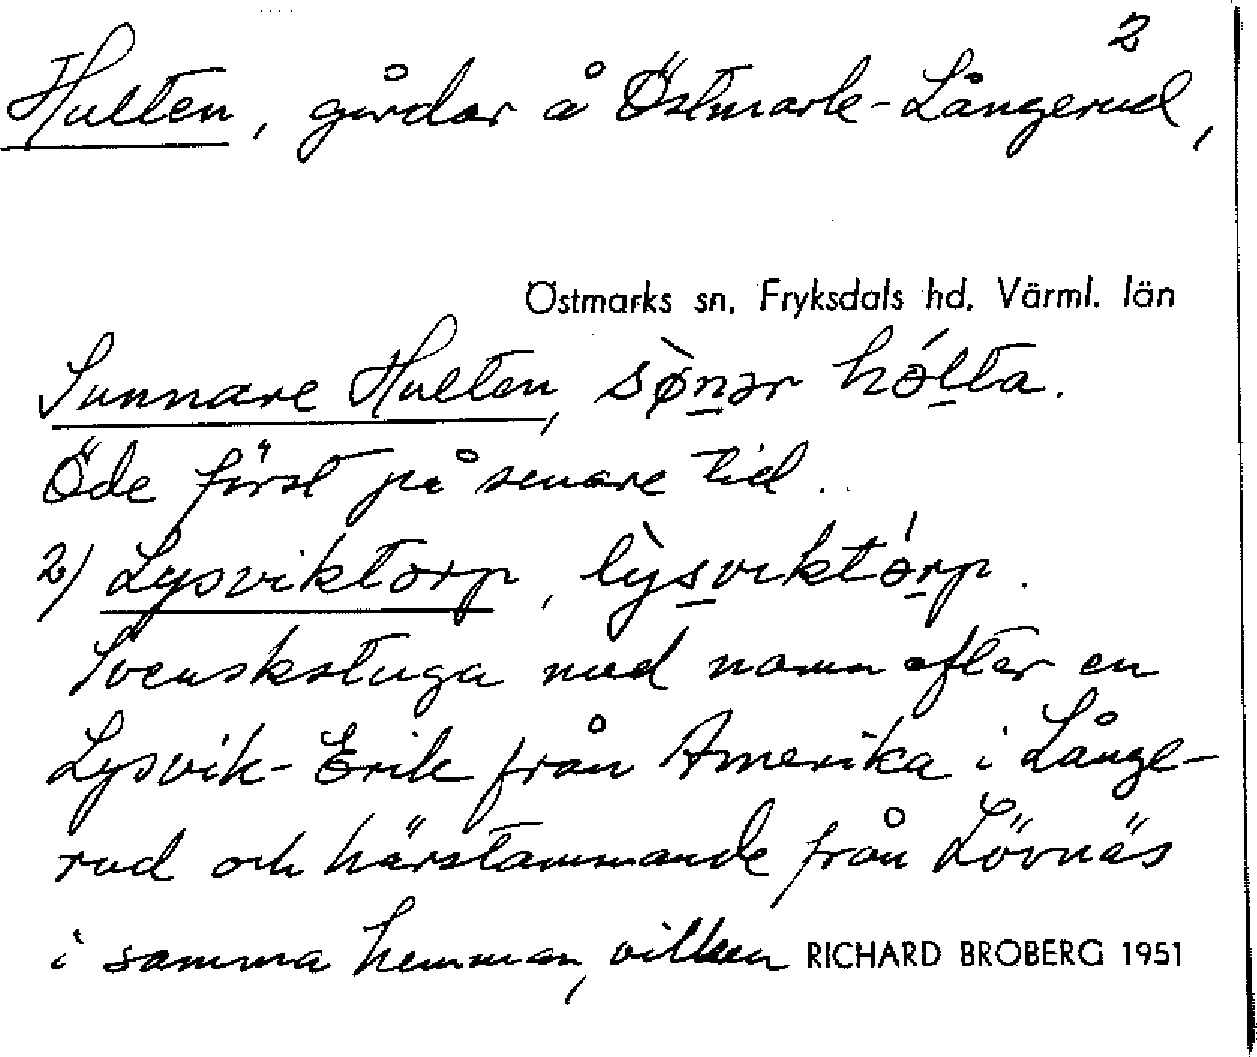 2
Hulten, gårdar å Östmark-Långerud,
Östmarks sn, Fryksdals hd. Värml. län
Sunnare Hulten, sø̀nər hólta.
Öde först på senare tid.
2) Lysviktorp, lỳsviktórp.
Svenskstuga med namn efter en
Lysvik-Erik från Amerika i Långe-
rud och härstammande från Lövnäs
i samma hemman, vilken RICHARD BROBERG 1951